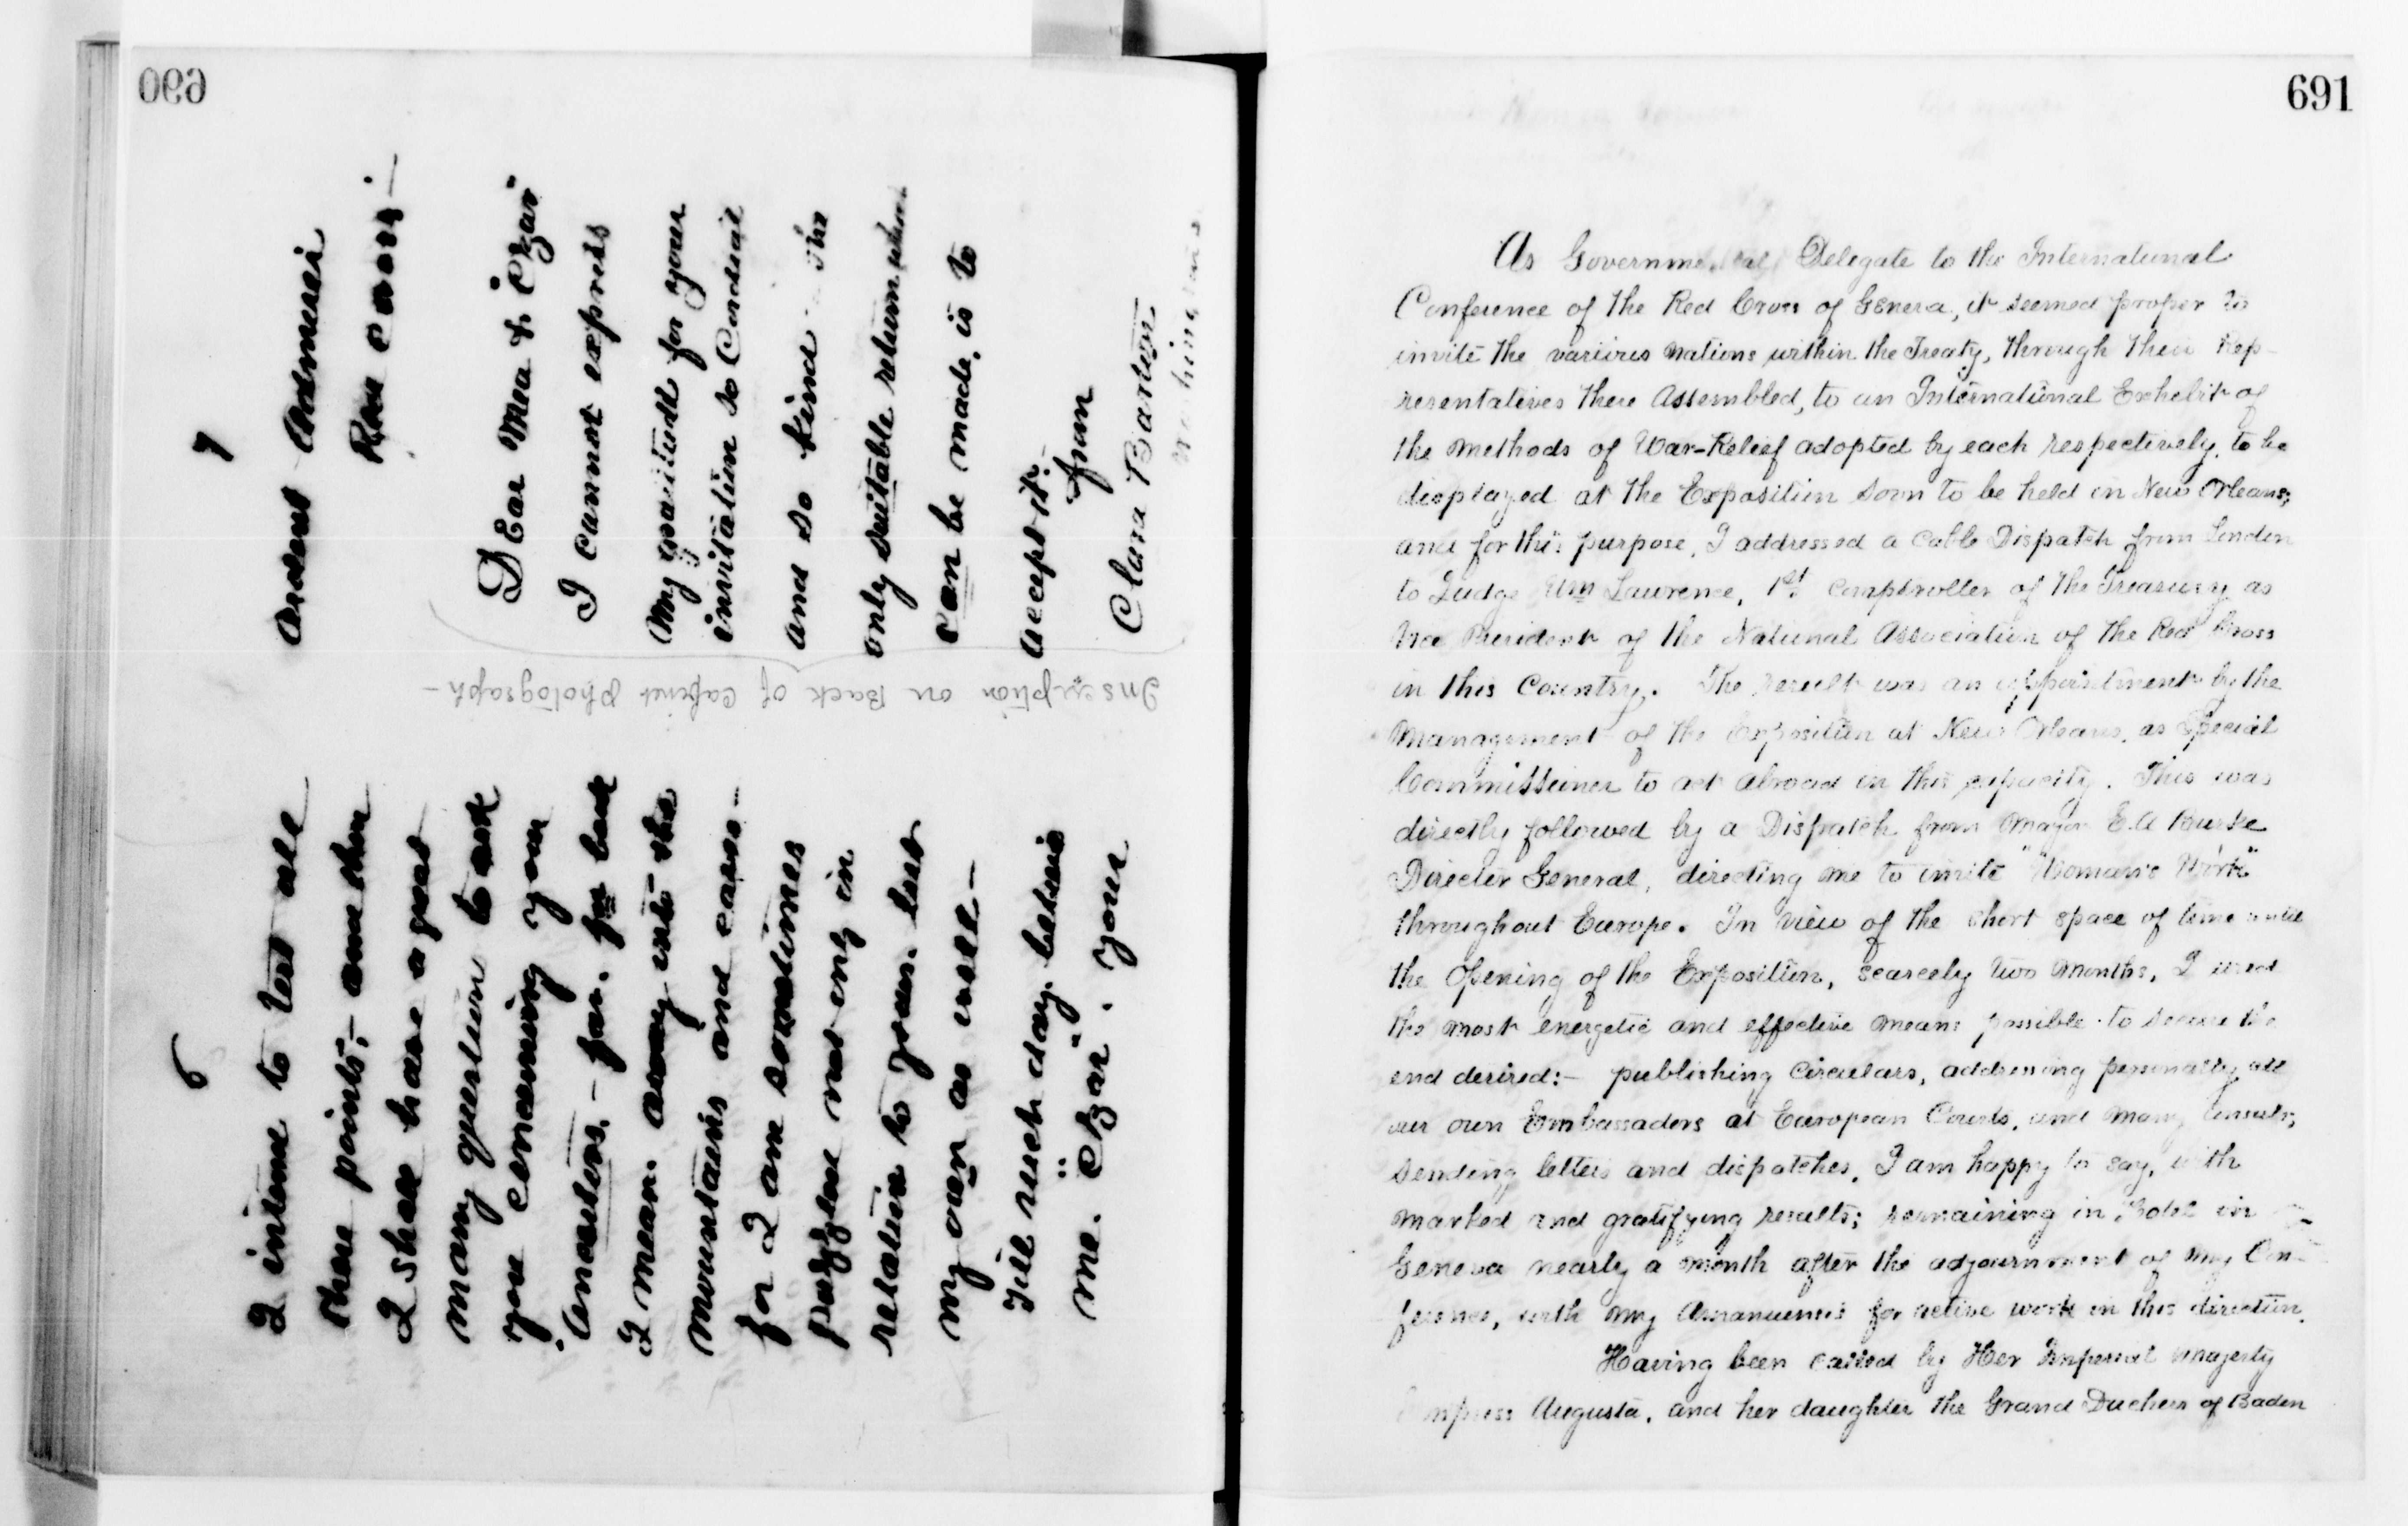 690
6
I intend to test all
these points, - and then
I shall have a great
many question to ask
you concerning your
"Ancestors, - far, far back
I mean, away into the
mountains and caves -
for I am sometimes
puzzled not only in
relation to yours, but
my own as well -
Till such day, believe
me, "Czar", your
7
Ardent Admirer
Red Cross -
Dear Mea & "Czar"
I cannot express
my gratitude for your
invitation so Cordial
and so kind - The
only suitable return which
can be made, is to
accept it -
from
Clara Barton
Washington
Inscription on Back of Cabinet Photograph -
691
As Governmental Delegate to the International
Conference of the Red Cross of Geneva, it seemed proper to
invite the various nations within the Treaty, through their Rep-
resentatives there Assembled, to an International Exhibit of
the methods of War-Relief adopted by each respectively, to be
displayed at the Exposition soon to be held in New Orleans;
and for this purpose, I addressed a Cable Dispatch from London
to Judge Wm Lawrence, 1st Comptroller of the Treasury as
Vice President of the National Association of the Red Cross
in this Country. The result was an appointment by the
Management of the Exposition at New Orleans, as Special
Commissioner to act abroad in this capacity. This was
directly followed by a Dispatch from Major E.A Burke
Director General, directing me to invite "Woman's Work"
throughout Europe. In view of the short space of time until
the Opening of the Exposition, scarcely two Months, I used
the most energetic and effective means possible to secure the
end desired:- publishing Circulars, addressing personally all
our own Embassadors at European Courts, and many Consuls;
sending letters and dispatches, I am happy to say, with
marked and gratifying results; remaining in Hotel in
Geneva nearly a month after the adjournment of my Con-
ference, with my Amanuensis for active work in this direction.
Having been called by Her Imperial Majesty
Empress Augusta, and her daughter the Grand Duchess of Baden